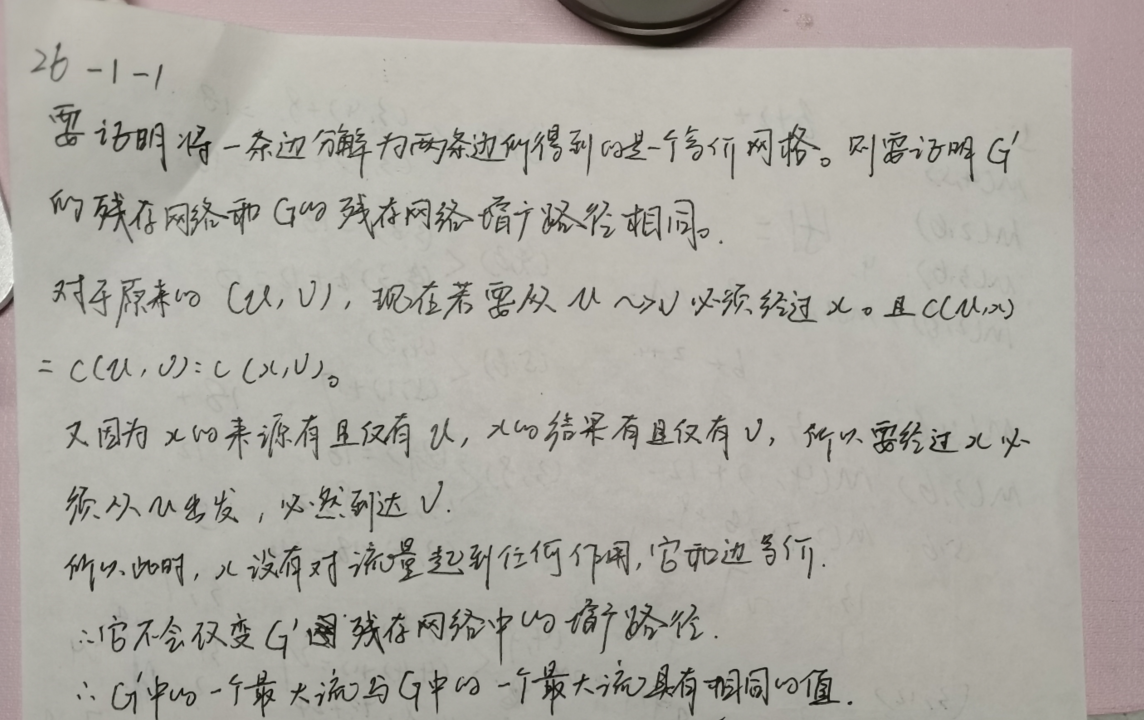 26-1-1
要证明将一条边分解为两条边所得到的是一个等价网格。则要证明G'
的残存网络和G的残存网络增广路径相同。
对于原来的(u,v),现在若要从u~>v必须经过x。且c(u,x)
=c(u,v)=c(x,v)。
又因为x的来源有且仅有u,x的结果有且仅有v,所以要经过x必
须从u出发,必然到达v.
所以此时,x没有对流量起到任何作用,它和边等价.
∴它不会改变G'残存网络中的增广路径.
∴G'中的一个最大流与G中的一个最大流具有相同的值.